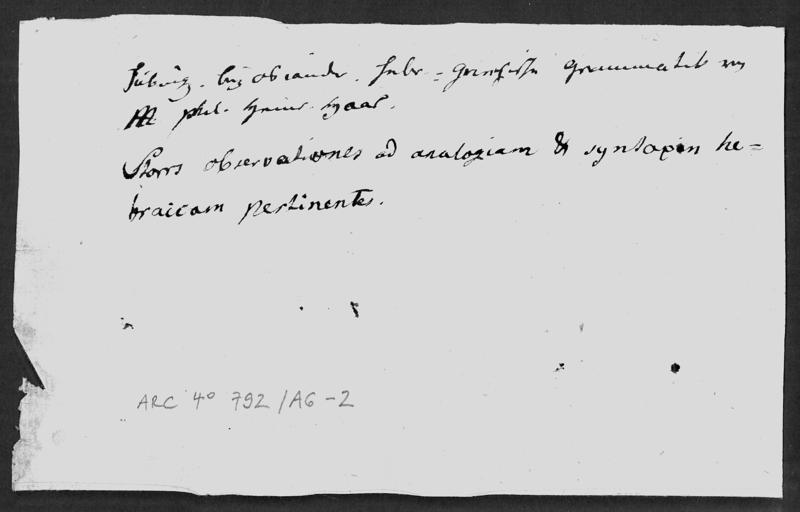 Tübing. bey Osiander. Hebr = Grammatik von
M Phil. Heinr. Haab.
Storrs observationes ad analogiam & syntaxin he=
braicam pertinentes.
ARC 4° 792 / A6 - 2